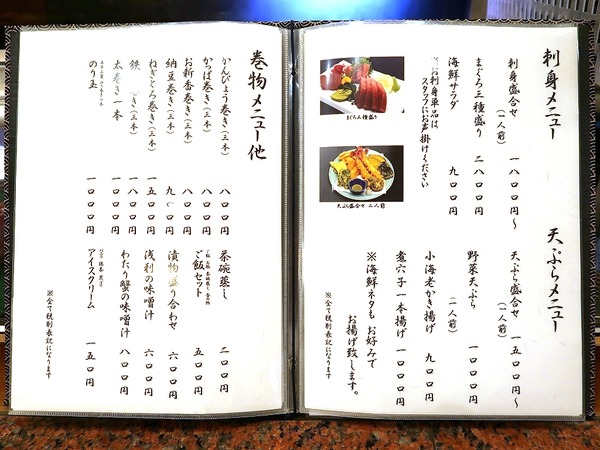 刺身メニュー
刺身盛合せ(一人前) 一八〇〇円〜
まぐろ三種盛り 二八〇〇円
海鮮サラダ 九〇〇円
※お刺身単品は
スタッフにお声掛けください
まぐろ三種盛り
天ぷら盛合せ 二人前
天ぷらメニュー
天ぷら盛合せ(一人前) 一五〇〇円〜
野菜天ぷら(一人前) 一一〇〇円
小海老かき揚げ 九〇〇円
煮穴子一本揚げ 一〇〇〇円
※海鮮ネタも お好みで
お揚げ致します。
※全て税別表記になります
巻物メニュー他
かんぴょう巻き(三本) 八〇〇円
かっぱ巻き(三本) 八〇〇円
お新香巻き(三本) 八〇〇円
納豆巻き(三本) 九〇〇円
ねぎとろ巻き(三本) 一五〇〇円
鉄 巻き(三本) 一八〇〇円
太巻き一本 一〇〇〇円
のり玉 一〇〇〇円
茶碗蒸し 二〇〇円
ご飯セット 五〇〇円
漬物盛り合わせ 六〇〇円
浅利の味噌汁 六〇〇円
わたり蟹の味噌汁 八〇〇円
バニラ 抹茶
アイスクリーム 一五〇円
※全て税別表記になります